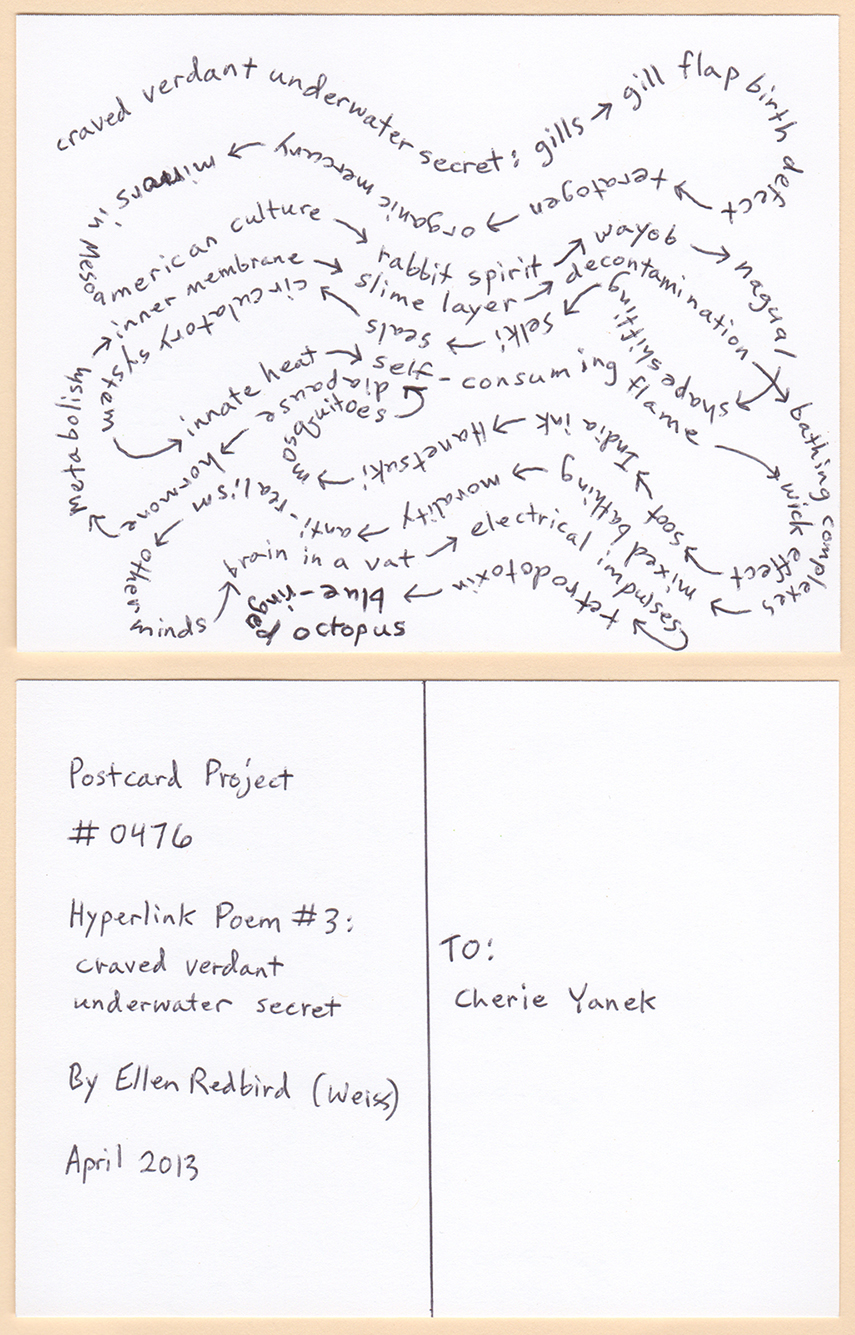 craved verdant underwater secret: gills →
gill flap birth defect →
teratogen →
organic mercury →
mirrors in Mesoamerican culture →
rabbit spirit →
wayob →
nagual →
shapeshifting →
selki →
seals →
circulatory system →
innate heat →
self-consuming flame →
wick effect →
soot →
India ink →
Hanetsuki →
mosquitoes →
diapause →
hormone →
metabolism →
inner membrane →
slime layer →
decontamination →
bathing complexes →
mixed bathing →
morality →
anti-realism →
other minds →
brain in a vat →
electrical impulses →
tetrodotoxin →
blue-ringed octopus
Postcard Project
#0476
Hyperlink Poem #3:
craved verdant
underwater secret
By Ellen Redbird (Weiss)
April 2013
TO:
Cherie Yanek